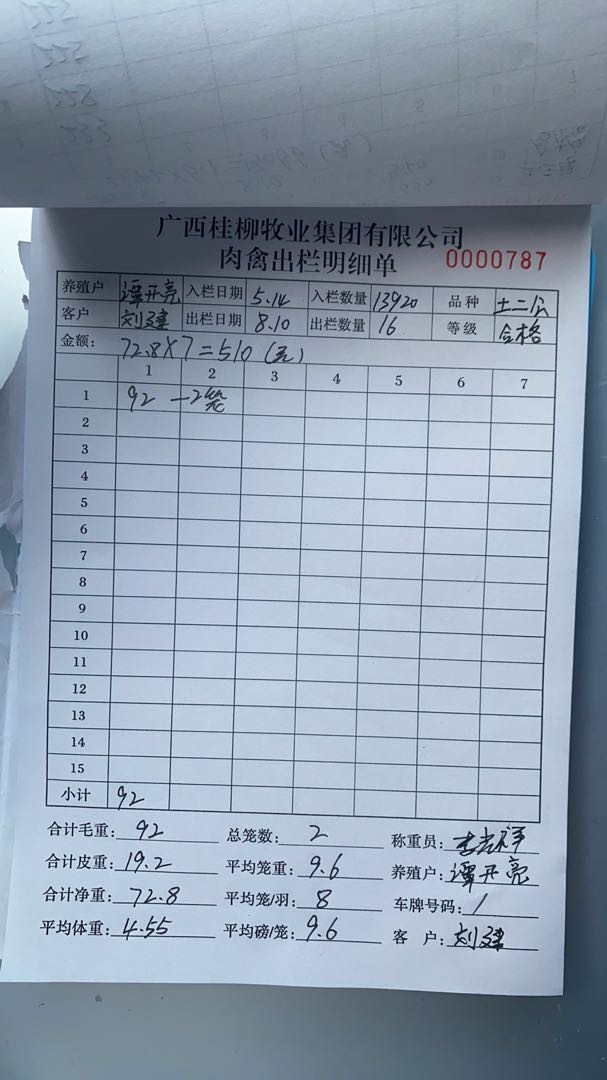 广西桂柳牧业集团有限公司
肉禽出栏明细单 0000787
养殖户 谭开亮 入栏日期 5.14 入栏数量 13920 品种 土二公
客户 刘建 出栏日期 8.10 出栏数量 16 等级 合格
金额: 72.8×7=510(元)
1 2 3 4 5 6 7
1 92 —2笼
2
3
4
5
6
7
8
9
10
11
12
13
14
15
小计 92
合计毛重: 92 总笼数: 2 称重员:
合计皮重: 19.2 平均笼重: 9.6 养殖户: 谭开亮
合计净重: 72.8 平均笼/羽: 8 车牌号码: /
平均体重: 4.55 平均磅/笼: 9.6 客 户: 刘建